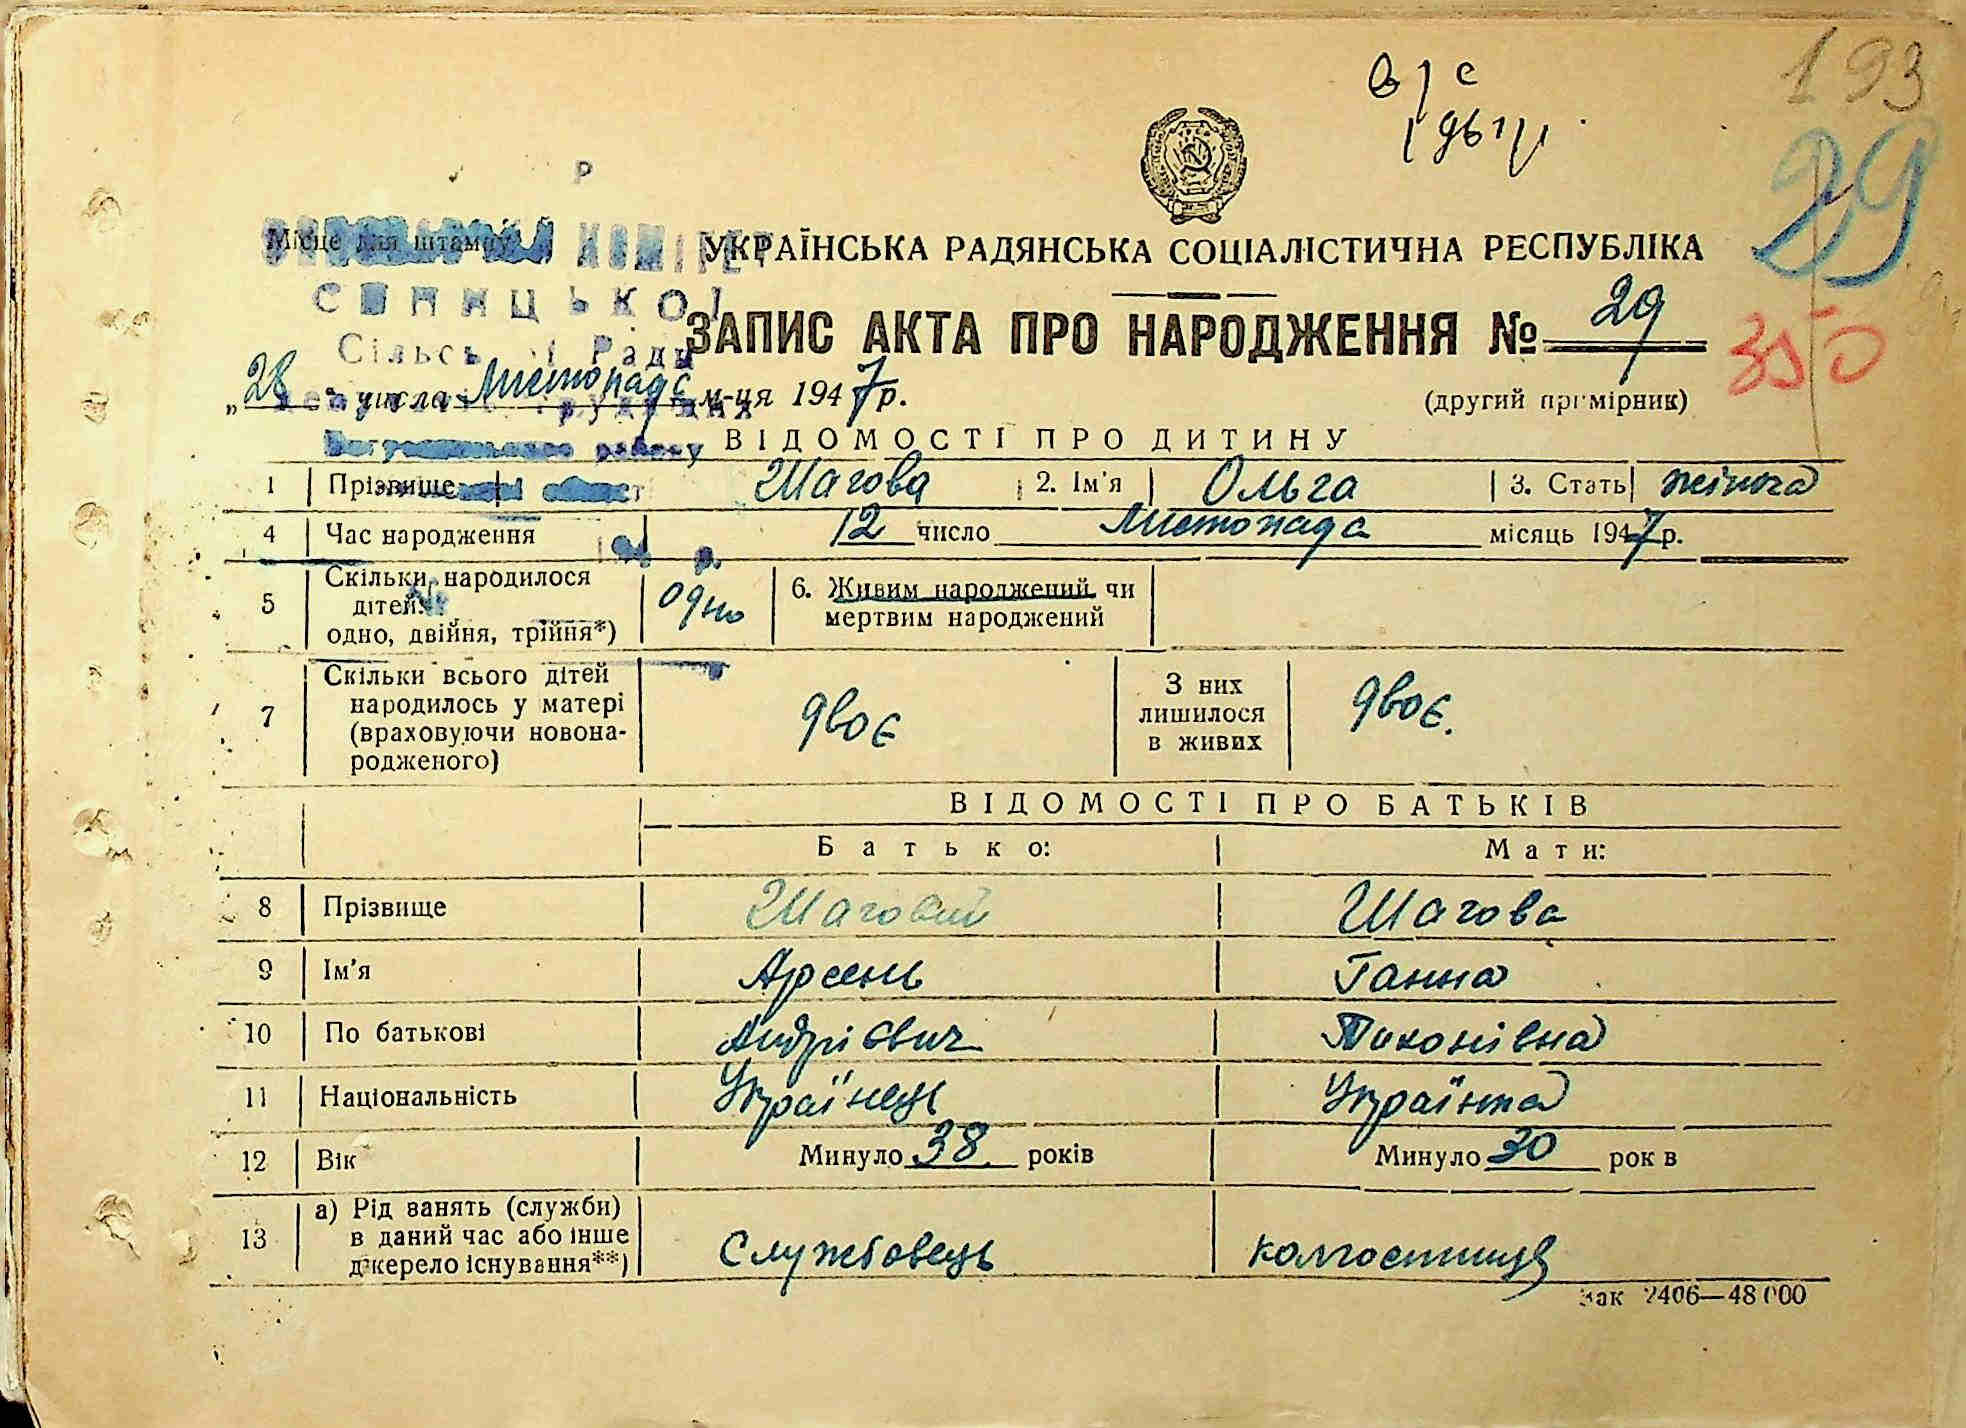 193
29
350
Місце для штампу
УКРАЇНСЬКА РАДЯНСЬКА СОЦІАЛІСТИЧНА РЕСПУБЛІКА
Сільс і Рад
ЗАПИС АКТА ПРО НАРОДЖЕННЯ № 29
„28" числа Листопада м-ця 1947 р.
(другий примірник)
району
ВІДОМОСТІ ПРО ДИТИНУ
1 Прізвище Шагова 2. Ім'я Ольга 3. Стать жіноча
4 Час народження 12 число Листопада місяць 1947 р.
5 Скільки народилося дітей: одно, двійня, трійня*) одно 6. Живим народжений чи мертвим народжений
7 Скільки всього дітей народилось у матері (враховуючи новонародженого) двоє З них лишилося в живих двоє.
ВІДОМОСТІ ПРО БАТЬКІВ
Батько: Мати:
8 Прізвище Шаговий Шагова
9 Ім'я Арсень Ганна
10 По батькові Андрієвич Тихонівна
11 Національність Українець Українка
12 Вік Минуло 38 років Минуло 30 рок в
13 а) Рід занять (служби) в даний час або інше джерело існування**) Службовець колгоспниця
Зак 2406—48 000